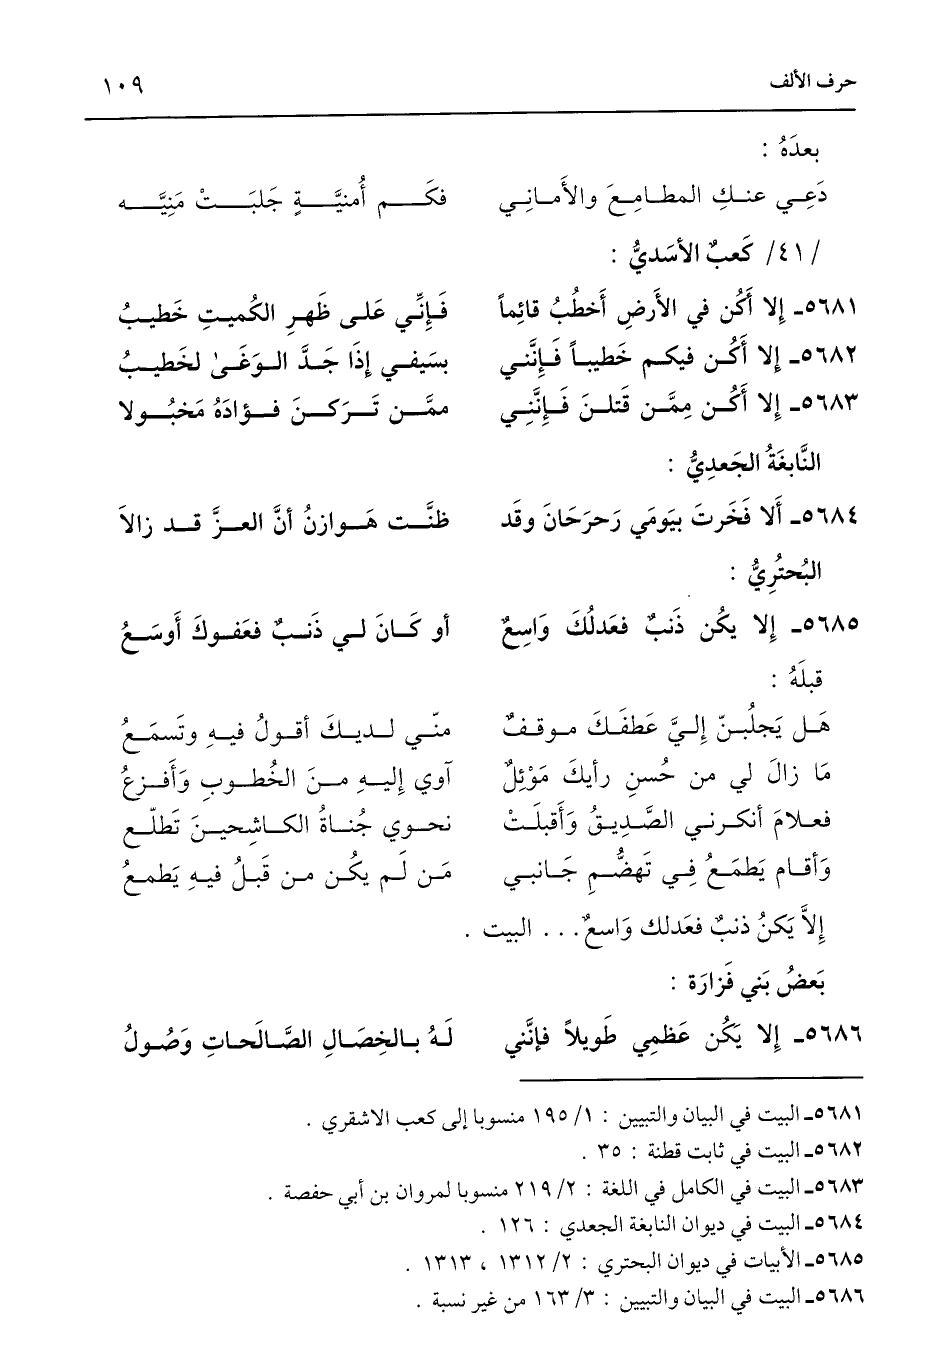 حرف الألف ١٠٩
بعدَهُ :
دَعِي عنكِ المطامِعَ والأَمانِي فكَم أُمنيَّةٍ جَلبَتْ مَنِيَّه
/٤١/ كَعبٌ الأسَديُّ :
٥٦٨١ـ إلا أَكُن في الأَرضِ أَخطُبُ قائِماً فَإنِّي عَلى ظَهرِ الكُميتِ خَطيبُ
٥٦٨٢ـ إلا أَكُن فيكم خَطيباً فَإنَّني بسَيفي إذَا جَدَّ الوَغَىٰ لخَطيبُ
٥٦٨٣ـ إلا أَكُن مِمَّن قَتلنَ فَإنَّنِي ممَّن تَرَكنَ فؤادَهُ مَخبُولا
النَّابغَةُ الجَعديُّ :
٥٦٨٤ـ أَلا فَخَرتَ بيَومَي رَحرَحَانَ وقَد ظنَّت هَوازنُ أنَّ العزَّ قد زالاَ
البُحتُريُّ :
٥٦٨٥ـ إلا يكُن ذَنبٌ فعَدلُكَ وَاسِعٌ أو كَانَ لي ذَنبٌ فعَفوكَ أَوسَعُ
قبلَهُ :
هَل يَجلُبنّ إليَّ عَطفَكَ موقفٌ منّي لديكَ أقولُ فيهِ وتَسمَعُ
مَا زالَ لي من حُسنِ رأيكَ مَوْئِلٌ آوي إليهِ منَ الخُطوبِ وَأَفزعُ
فعلامَ أنكرني الصَّديقُ وَأَقبلَتْ نحوي جُناةُ الكاشحينَ تَطلّع
وَأقام يَطمَعُ في تَهضُّمِ جَانبي مَن لَم يكُن من قَبلُ فيهِ يَطمعُ
إلاَّ يَكنُ ذنبٌ فعَدلك وَاسعٌ . . . البيت .
بَعضُ بَني فَزارَة :
٥٦٨٦ـ إلا يَكُن عَظمِي طَويلاً فإنَّني لَهُ بالخِصَالِ الصَّالحَاتِ وَصُولُ
٥٦٨١ـ البيت في البيان والتبيين : ١/ ١٩٥ منسوبا إلى كعب الاشقري .
٥٦٨٢ـ البيت في ثابت قطنة : ٣٥ .
٥٦٨٣ـ البيت في الكامل في اللغة : ٢/ ٢١٩ منسوبا لمروان بن أبي حفصة .
٥٦٨٤ـ البيت في ديوان النابغة الجعدي : ١٢٦ .
٥٦٨٥ـ الأبيات في ديوان البحتري : ٢/ ١٣١٢ ، ١٣١٣ .
٥٦٨٦ـ البيت في البيان والتبيين : ٣/ ١٦٣ من غير نسبة .